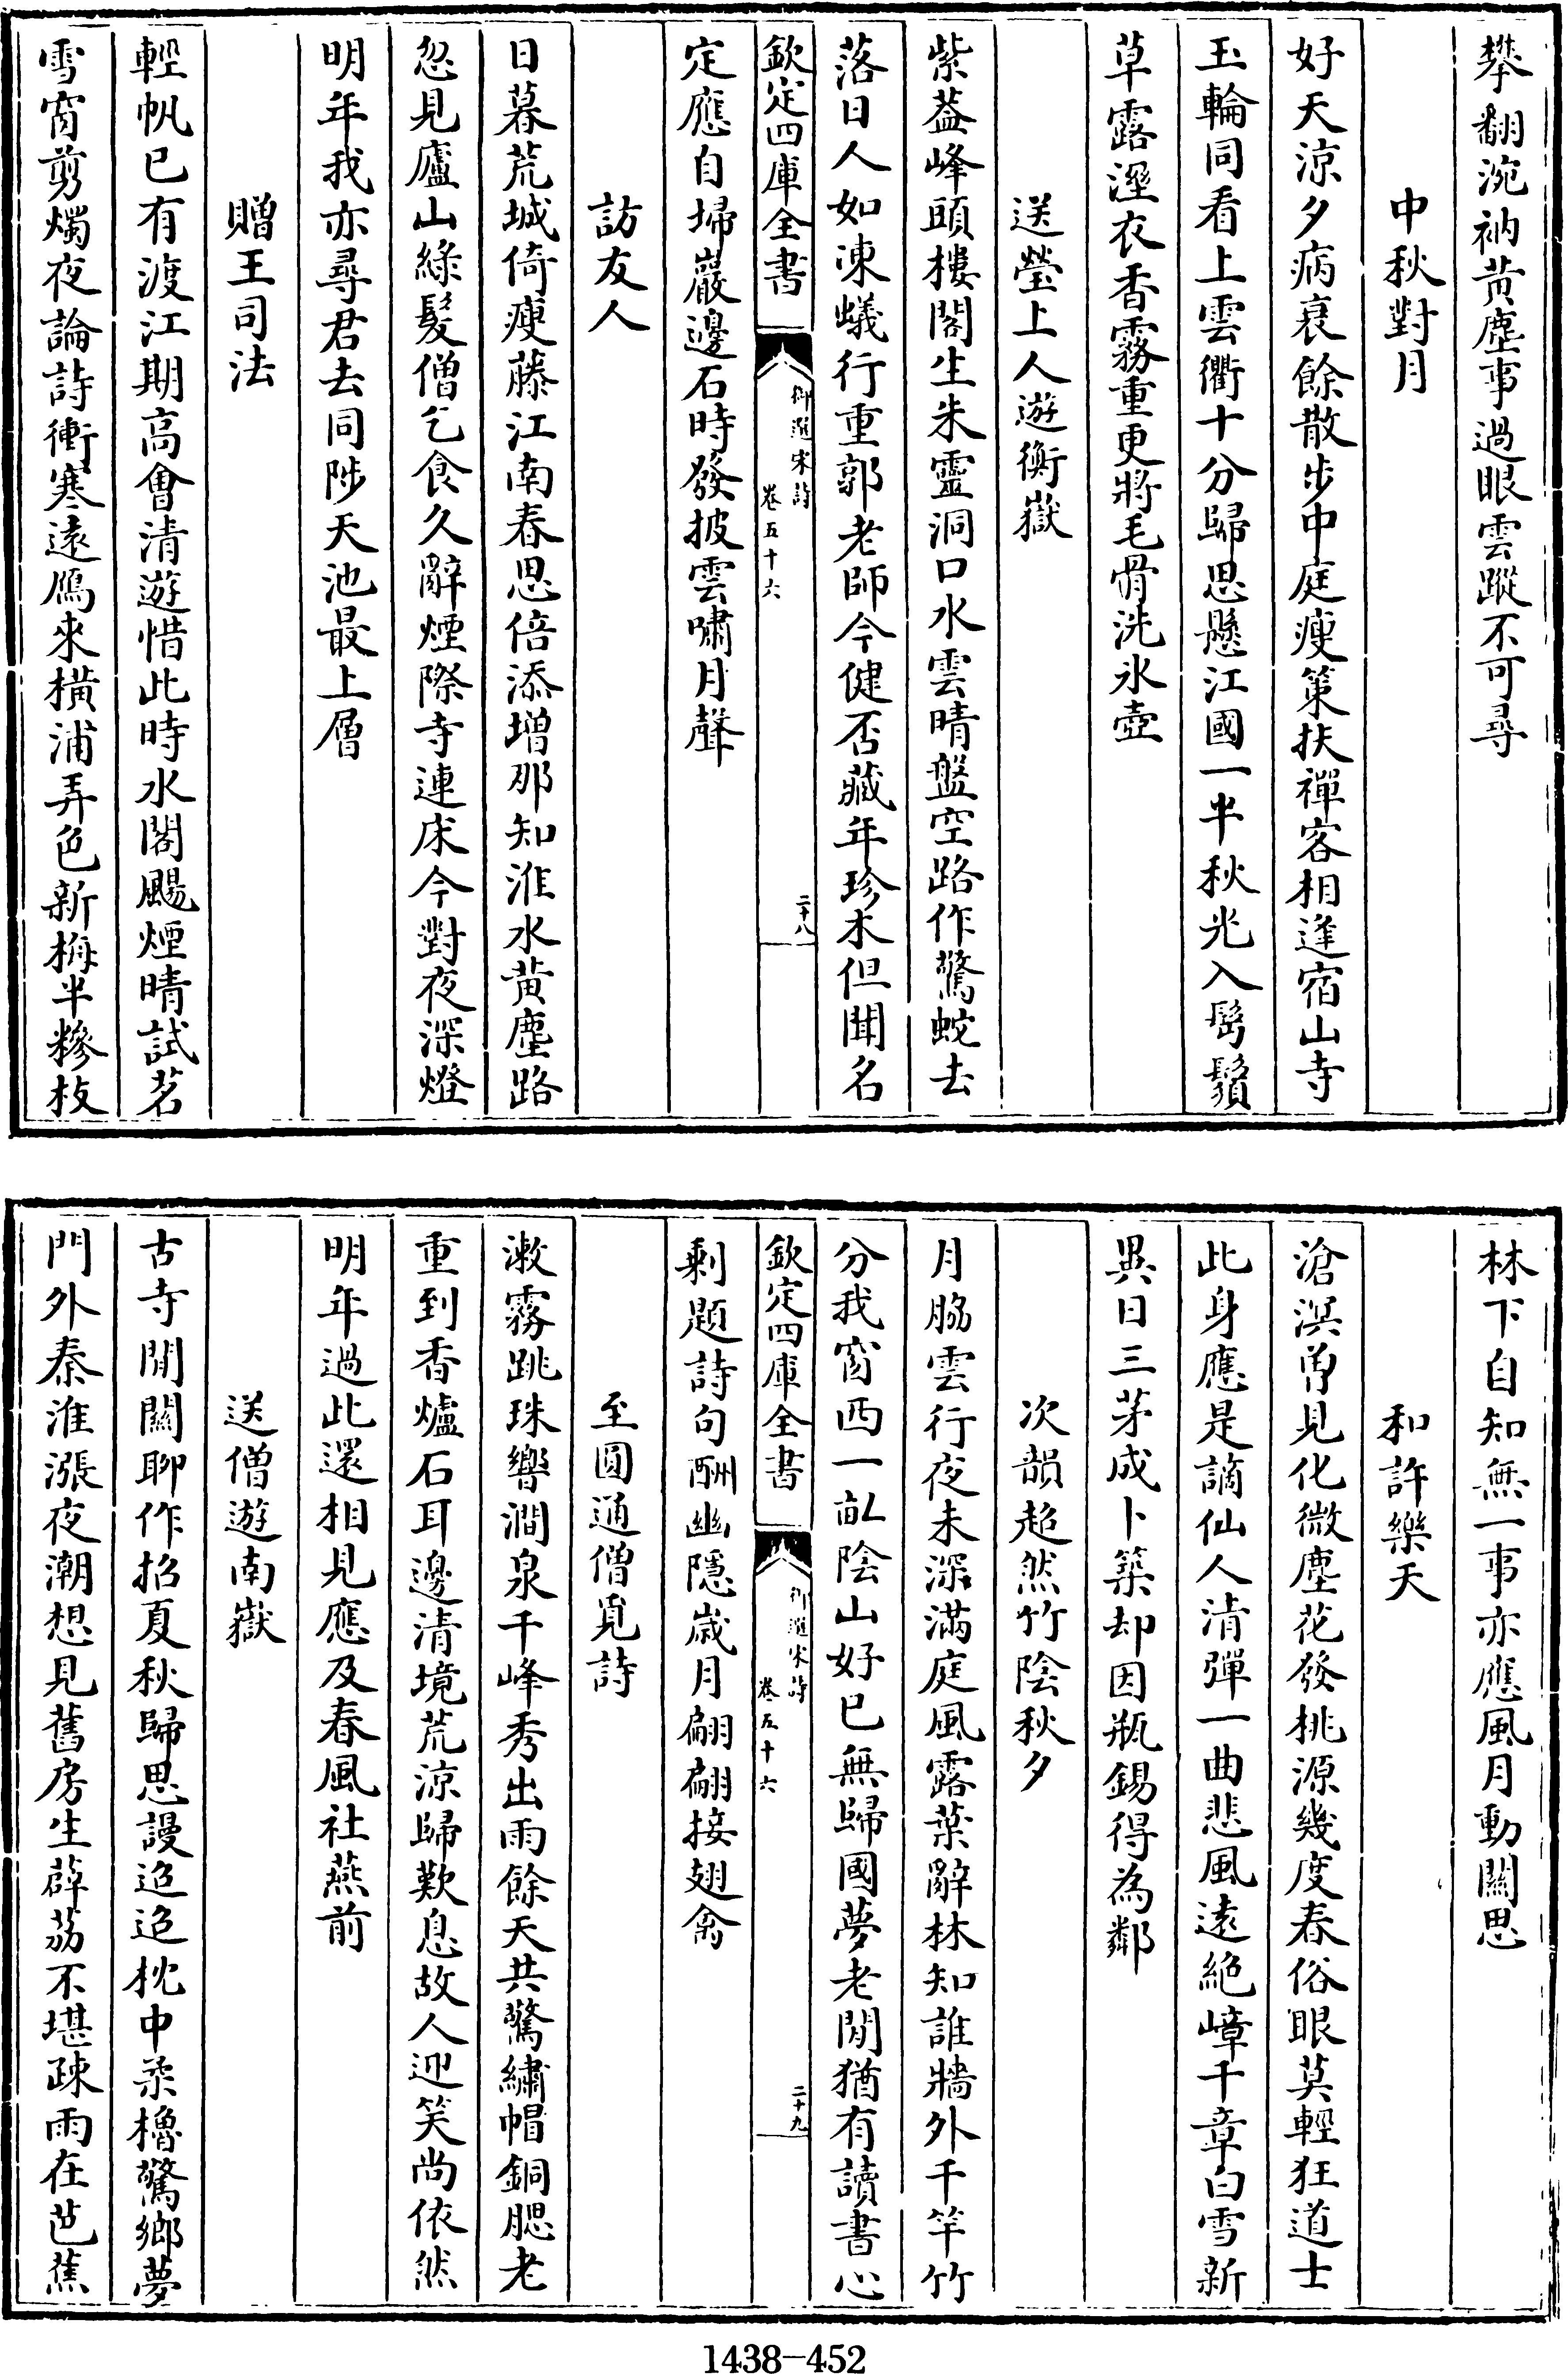 攀翻涴衲黃塵事過眼雲蹤不可尋
中秋對月
好天涼夕病衰餘散步中庭瘦策扶禪客相逢宿山寺
玉輪同看上雲衢十分歸思懸江國一半秋光入髩鬚
草露溼衣香霧重更將毛骨洗氷壺
送瑩上人遊衡嶽
紫葢峰頭樓閣生朱靈洞口水雲晴盤空路作驚蛇去
落日人如凍蟻行重郭老師今健否藏年珍木但聞名
欽定四庫全書
御選宋詩
卷五十六
二十八
定應自埽巖邊石時發披雲嘯月聲
訪友人
日暮荒城倚瘦藤江南春思倍添增那知淮水黃塵路
忽見廬山綠髮僧乞食久辭煙際寺連床今對夜深燈
明年我亦尋君去同陟天池最上層
贈王司法
輕帆已有渡江期高會清遊惜此時水閣颺煙晴試茗
雪窗剪燭夜論詩衝寒遠鴈來橫浦弄色新梅半糝枝
林下自知無一事亦應風月動關思
和許樂天
滄溟曽見化微塵花發桃源幾度春俗眼莫輕狂道士
此身應是謫仙人清彈一曲悲風遠絶嶂千章白雪新
異日三茅成卜築却因瓶錫得為鄰
次韻超然竹陰秋夕
月脇雲行夜未深滿庭風露葉辭林知誰牆外千竿竹
分我窗西一畝陰山好已無歸國夢老閒猶有讀書心
欽定四庫全書
御選宋詩
卷五十六
二十九
剰題詩句酬幽隱歲月翩翩接翅禽
至圓通僧覓詩
漱霧跳珠響澗泉千峰秀出雨餘天共驚繡帽銅腮老
重到香爐石耳邊清境荒涼歸歎息故人迎笑尚依然
明年過此還相見應及春風社燕前
送僧遊南嶽
古寺閒關聊作招夏秋歸思謾迢迢枕中柔櫓驚鄉夢
門外秦淮漲夜潮想見舊房生薜荔不堪疎雨在芭蕉
1438-452